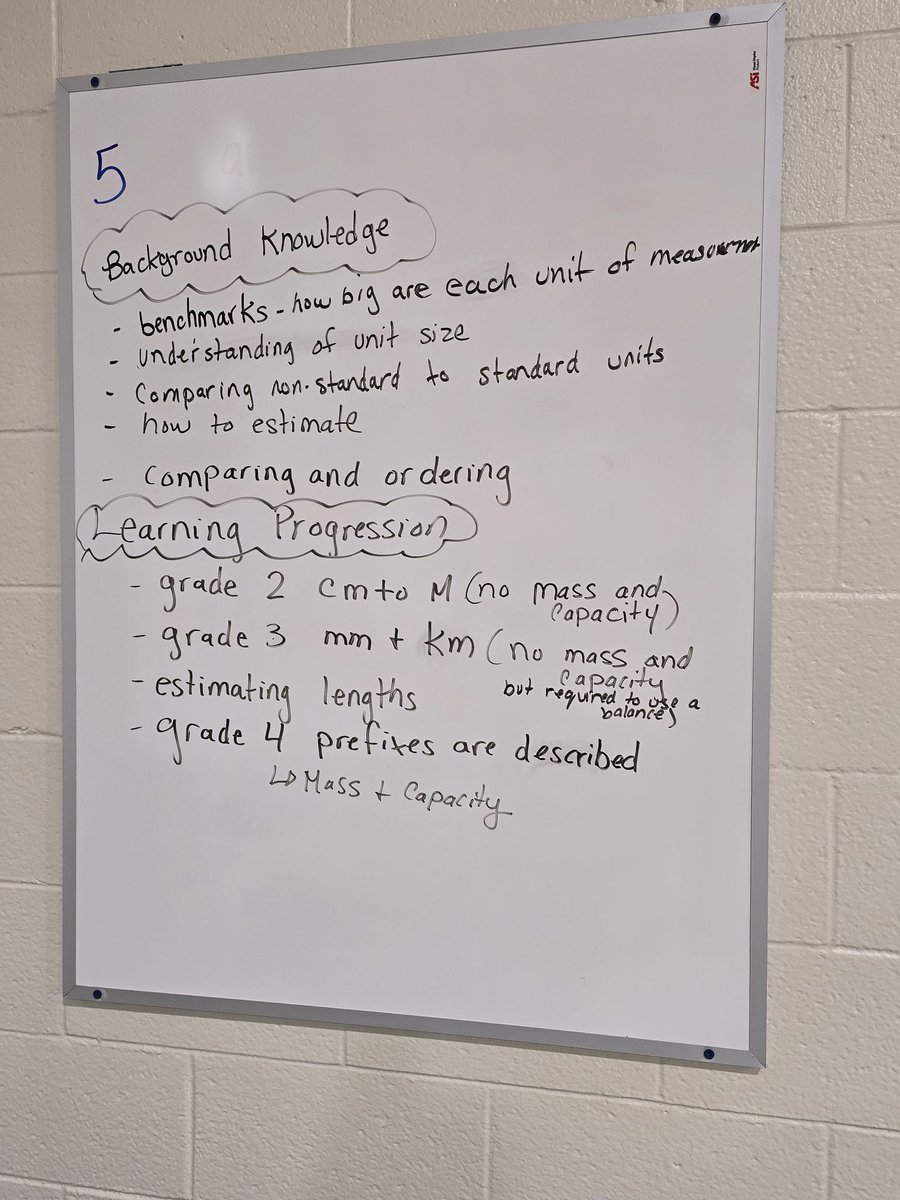 5
ASi
Background Knowledge
- benchmarks - how big are each unit of measurement
- understanding of unit size
- Comparing non-standard to standard units
- how to estimate
- Comparing and ordering
Learning Progression
- grade 2 cm to M (no mass and
capacity)
- grade 3 mm + km (no mass and
capacity
but required to use a
balance)
- estimating lengths
- grade 4 prefixes are described
↳ Mass + Capacity